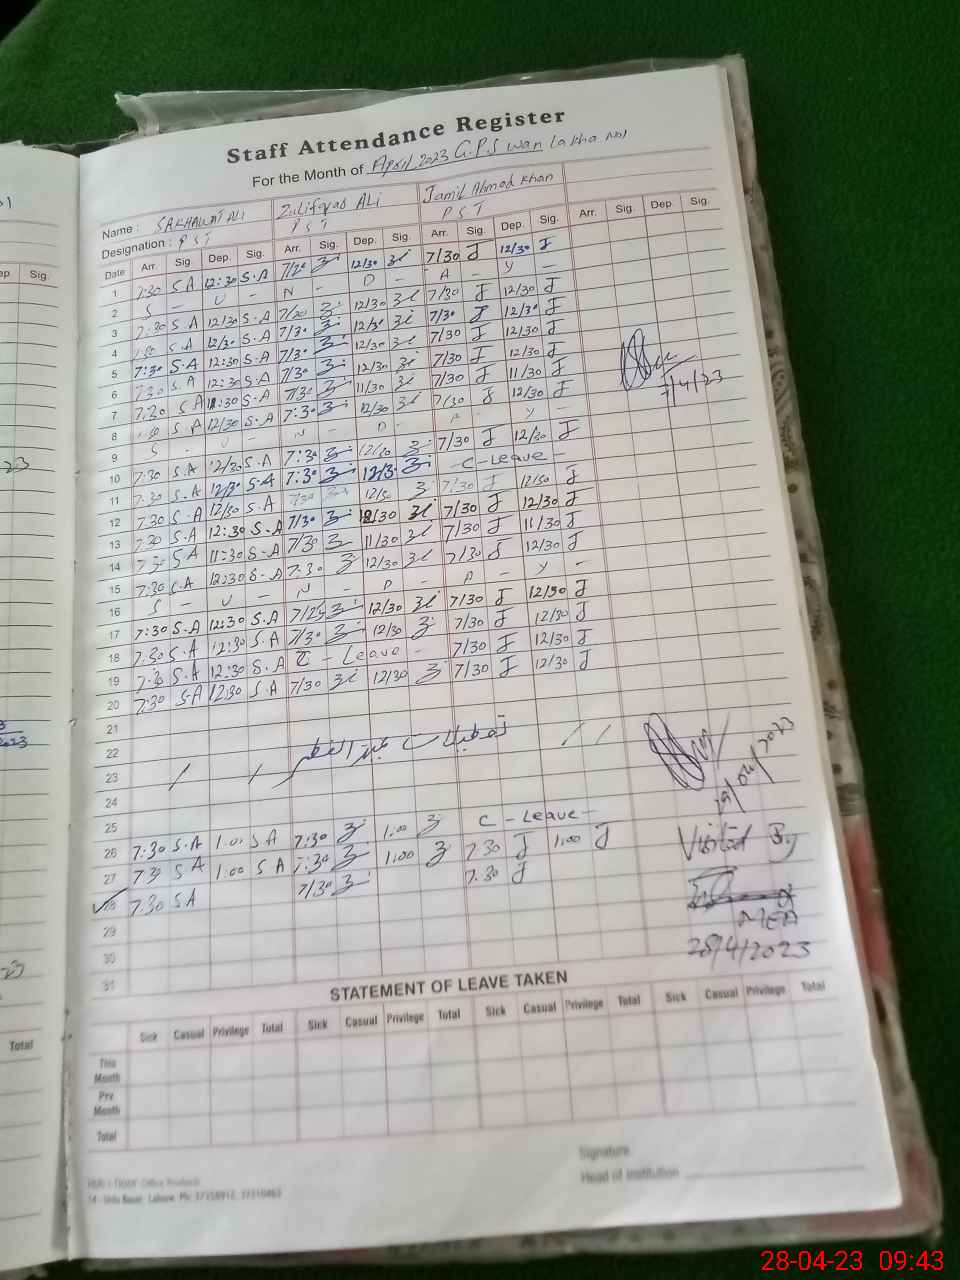 Staff Attendance Register
For the Month of April 2023 G.P.S wan Lakha No1
Name : SAKHAWAT ALI Zulifqar ALI Jamil Ahmad Khan
Designation : P S T P S T P S T
Date Arr. Sig. Dep. Sig. Arr. Sig. Dep. Sig. Arr. Sig. Dep. Sig. Arr. Sig. Dep. Sig.
1 7:30 S A 12:30 S.A 12/30 7/30 J 12/30 J
2 S - U - N - D - A - Y -
3 7:30 S A 12/30 S.A 12/30 7/30 J 12/30 J
4 S.A 12/30 S.A 7/30 12/30 7/30 J 12/30 J
5 7:30 S.A 12:30 S.A 7/30 12/30 7/30 J 12/30 J
6 7:30 S.A 12:30 S.A 7/30 12/30 7/30 J 12/30 J
7 7:30 S A S.A 7/30 11/30 7/30 J 11/30 J
8 S A 12/30 S.A 7:30 12/30 7/30 J 12/30 J
9 S - U - N - D - A - Y -
10 7:30 S.A 12/30 S.A 7:30 12/30 7/30 J 12/30 J
11 7:30 S.A 12/30 S.A 7:30 12/3 - C - Leave -
12 7:30 S.A 12/30 S.A 7/30 12/30 7/30 J 12/30 J
13 7:30 S.A 12:30 S.A 7/30 12/30 7/30 J 12/30 J
14 7:30 S A 11:30 S.A 7/30 11/30 7/30 J 11/30 J
15 7:30 S.A 12:30 S.A 7:30 12/30 7/30 J 12/30 J
16 S - U - N - D - A - Y -
17 7:30 S.A 12:30 S.A 7/25 12/30 7/30 J 12/30 J
18 7:30 S.A 12:30 S.A 7/30 12/30 7/30 J 12/30 J
19 7:30 S.A 12:30 S.A C - Leave - 7/30 J 12/30 J
20 7:30 S.A 12:30 S.A 7/30 12/30 7/30 J 12/30 J
21
22 / / تعطیلات عید الفطر / /
23
24
25 C - Leave -
26 7:30 S.A 1:00 S A 7:30 1:00
27 7:30 S A 1:00 S A 7:30 1:00 7.30 J 1:00 J
28 7.30 S A 7/30 7.30 J
29
30
31
/4/23
/04/2023
Visited By
MEA
28/4/2023
STATEMENT OF LEAVE TAKEN
Sick Casual Privilege Total Sick Casual Privilege Total Sick Casual Privilege Total Sick Casual Privilege Total
This Month
Prv Month
Total
Signature
Head of Institution
Office Products
14 - Urdu Bazar Lahore Ph:
Sig.
Total
28-04-23 09:43